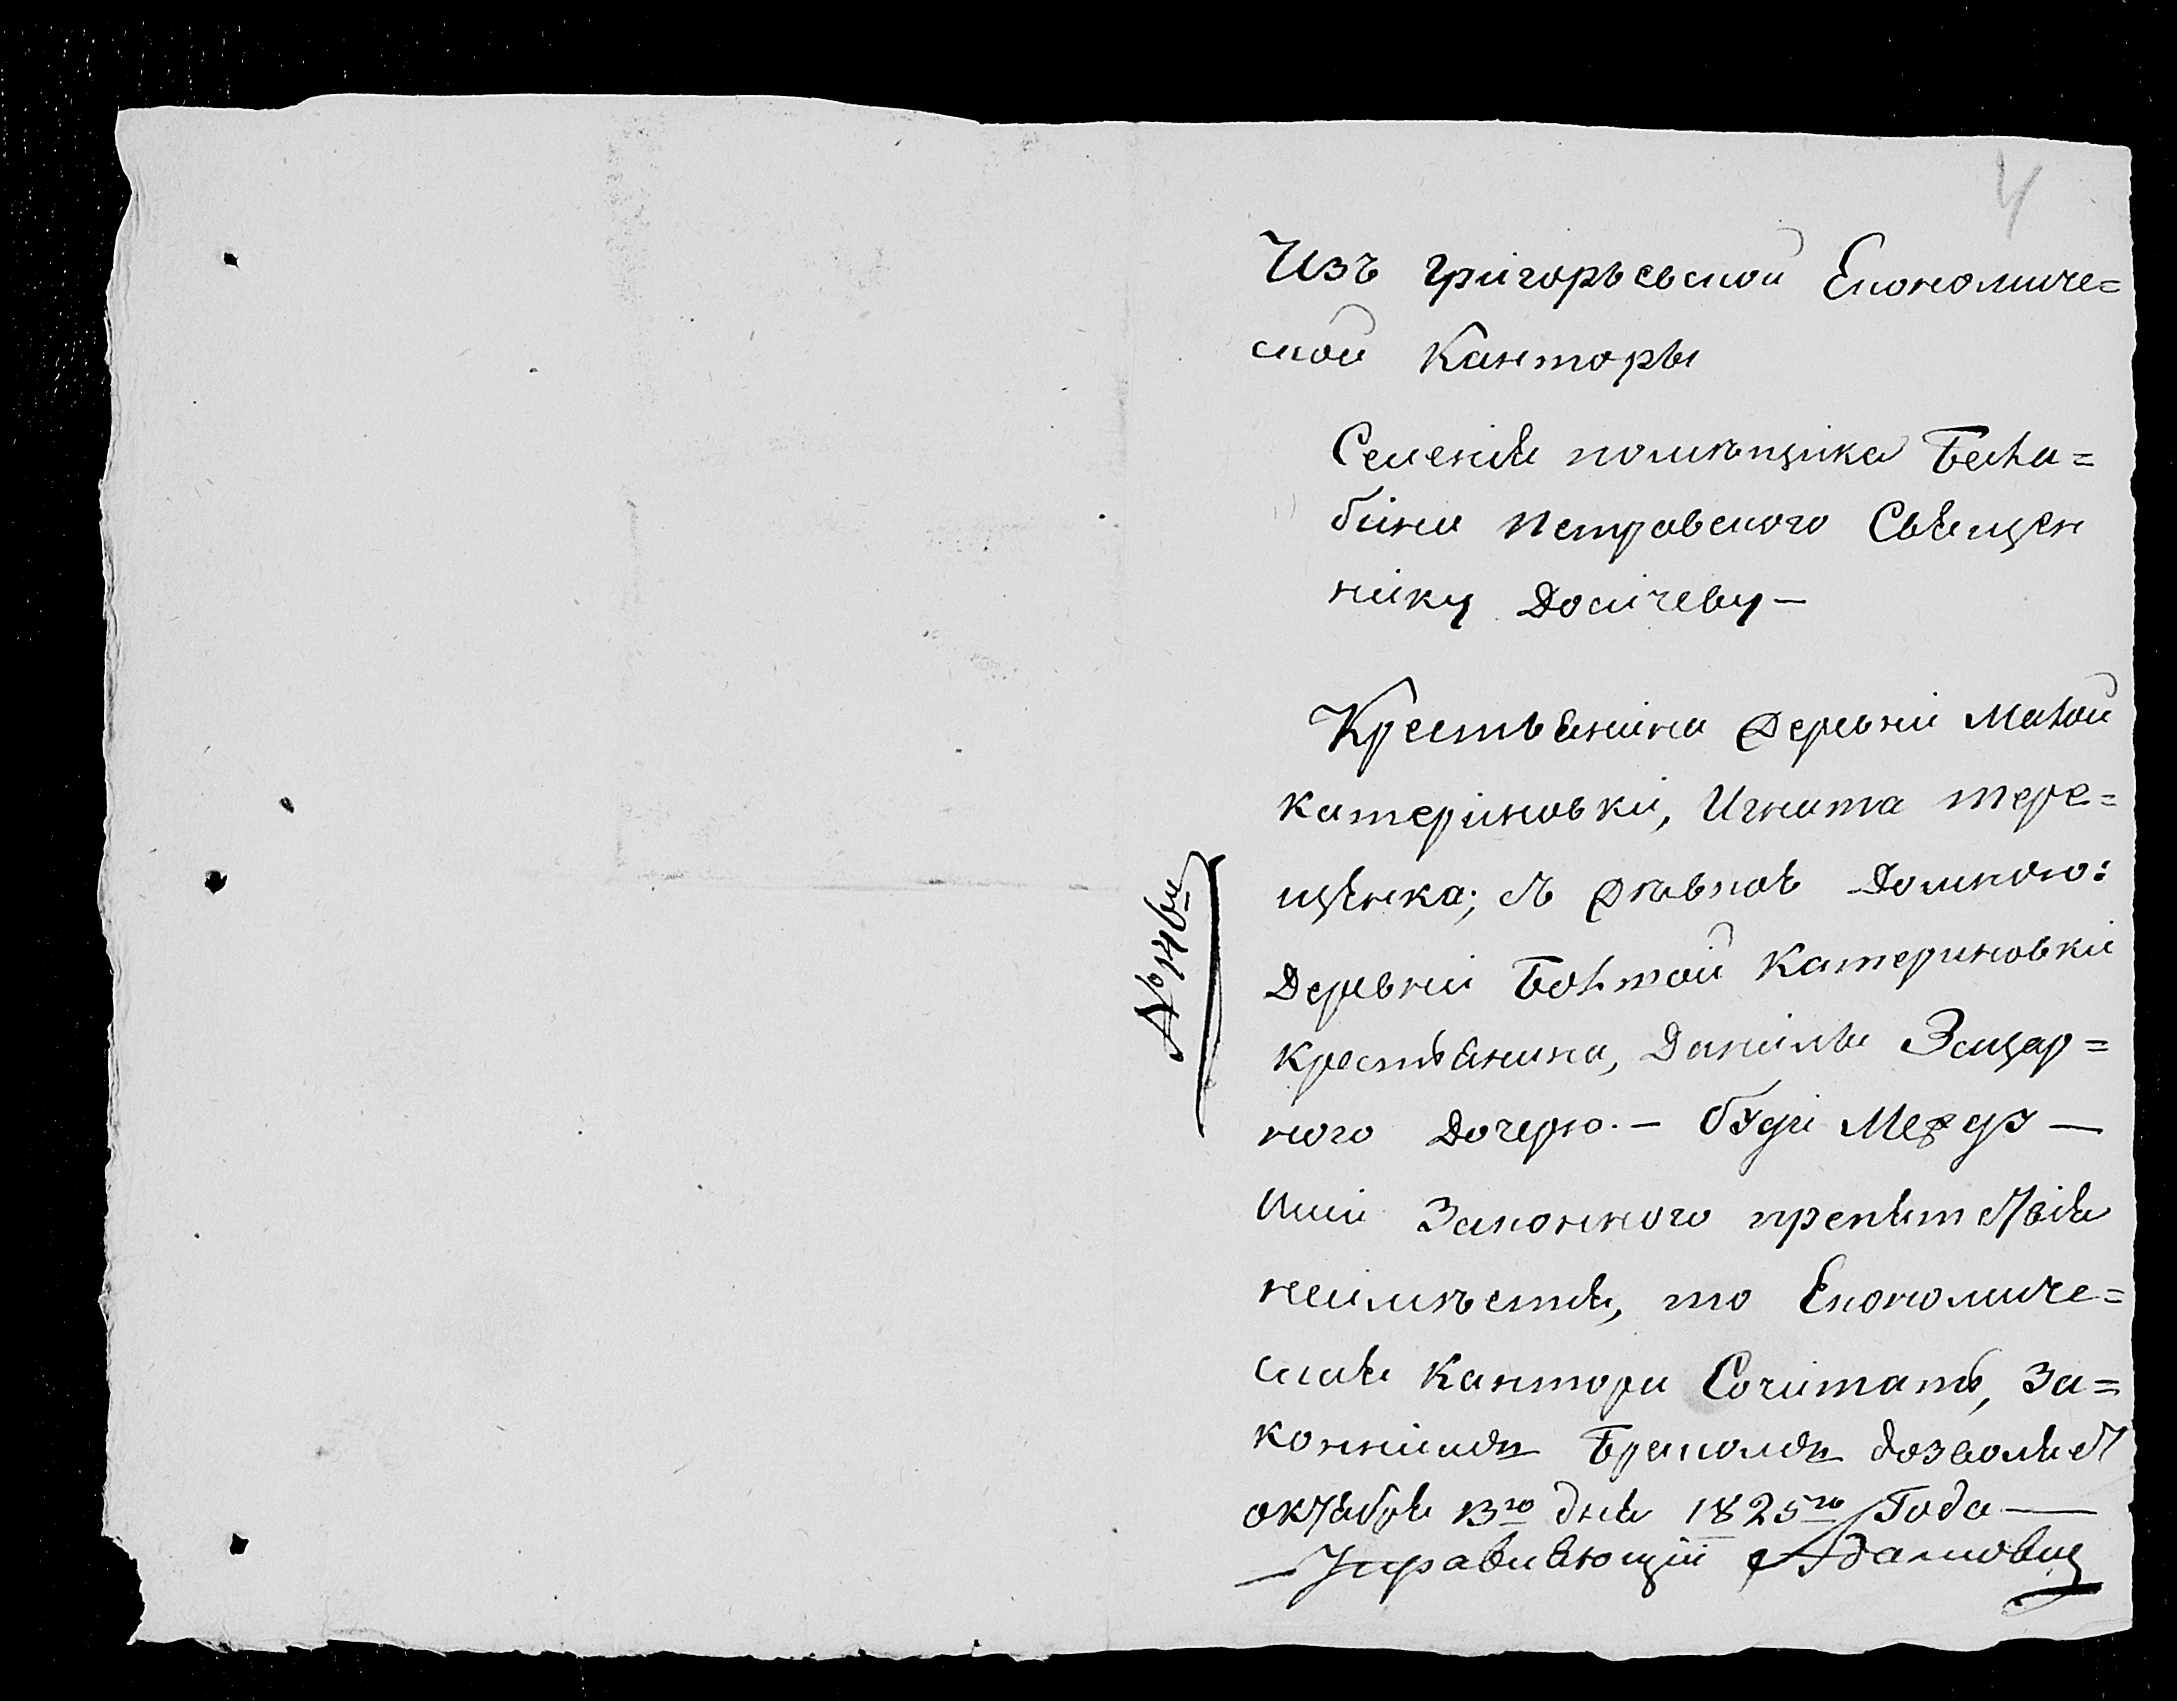 4
Изъ григорьевской Економиче=
ской Канторы
Селенія помѣщика Бала=
біна Петровского Священ
ніку Досичеву —
Крестьяніна Деревні Малой
катеріновкі, Игната тере=
щенка; съ дѣвкою Домною:
Деревні Болшой Катериновкі
крестьянина, Данилы Зацар=
ного Дочерю. — буди Между —
ими Законного препятствія
неімѣетъся, то Економиче=
ская Кантора Сочитать, За=
коннимъ Бракомъ дозволяет
октября 13го дня 1825го Года —
Управляющій Адамовиц
№ 14й